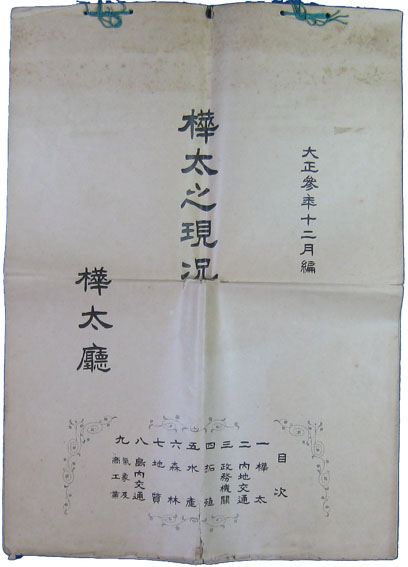 大正參年十二月編
樺太之現況
樺太廳
目次
一 樺太
二 內地交通
三 政務機關
四 拓殖
五 水產
六 森林
七 地質
八 島內交通
九 氣象及商工業